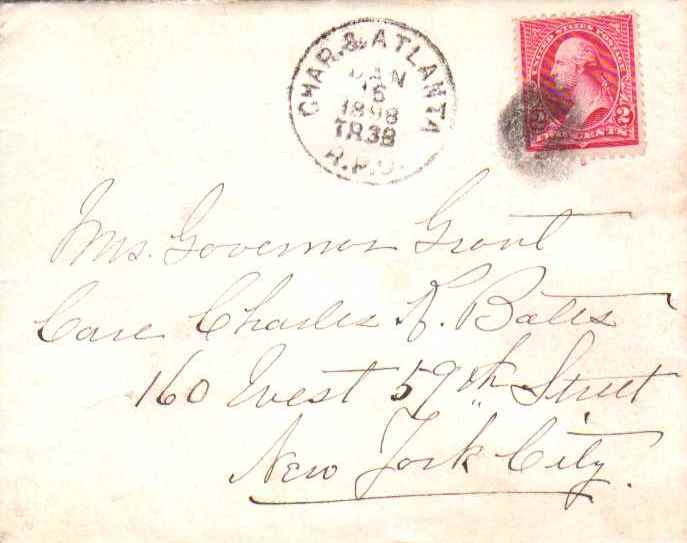 CHAR. & ATLANTA
JAN
15
1898
TR38
R.P.O.
UNITED STATES POSTAGE
2
TWO CENTS
Mrs. Governor Grant
Care Charles R. Batts
160 West 59th Street
New York City.